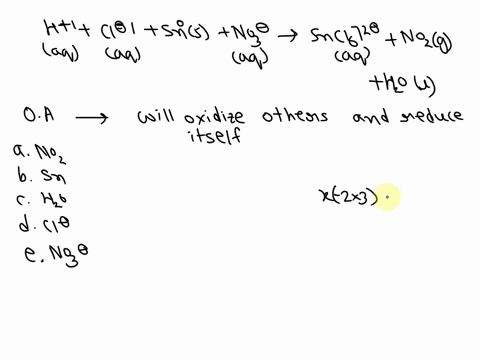 H+1 + Cl⊖1 + Sn°(s) + NO3⊖ → SnCl6]2⊖ + NO2(g)
(aq) (aq) (aq) (aq)
+ H2O (l)
O.A → will oxidize others and reduce
itself
a. NO2
b. Sn
c. H2O
d. Cl⊖
e. NO3⊖
x(-2×3)